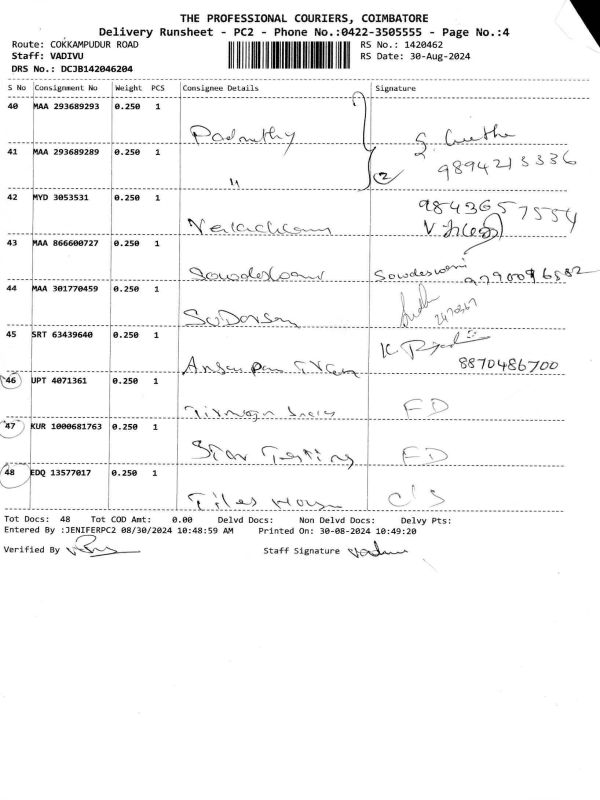 THE PROFESSIONAL COURIERS, COIMBATORE
Delivery Runsheet - PC2 - Phone No.:0422-3505555 - Page No.:4
Route: COKKAMPUDUR ROAD RS No.: 1420462
Staff: VADIVU RS Date: 30-Aug-2024
DRS No.: DCJB142046204
S No Consignment No Weight PCS Consignee Details Signature
40 MAA 293689293 0.250 1
41 MAA 293689289 0.250 1
" 2 9894213336
42 MYD 3053531 0.250 1 9843657554
43 MAA 866600727 0.250 1
Sowdeswari
44 MAA 301770459 0.250 1
45 SRT 63439640 0.250 1
8870486700
46 UPT 4071361 0.250 1
FD
47 KUR 1000681763 0.250 1
Star Testing FD
48 EDQ 13577017 0.250 1
Tiles House C/S
Tot Docs: 48 Tot COD Amt: 0.00 Delvd Docs: Non Delvd Docs: Delvy Pts:
Entered By :JENIFERPC2 08/30/2024 10:48:59 AM Printed On: 30-08-2024 10:49:20
Verified By Staff Signature